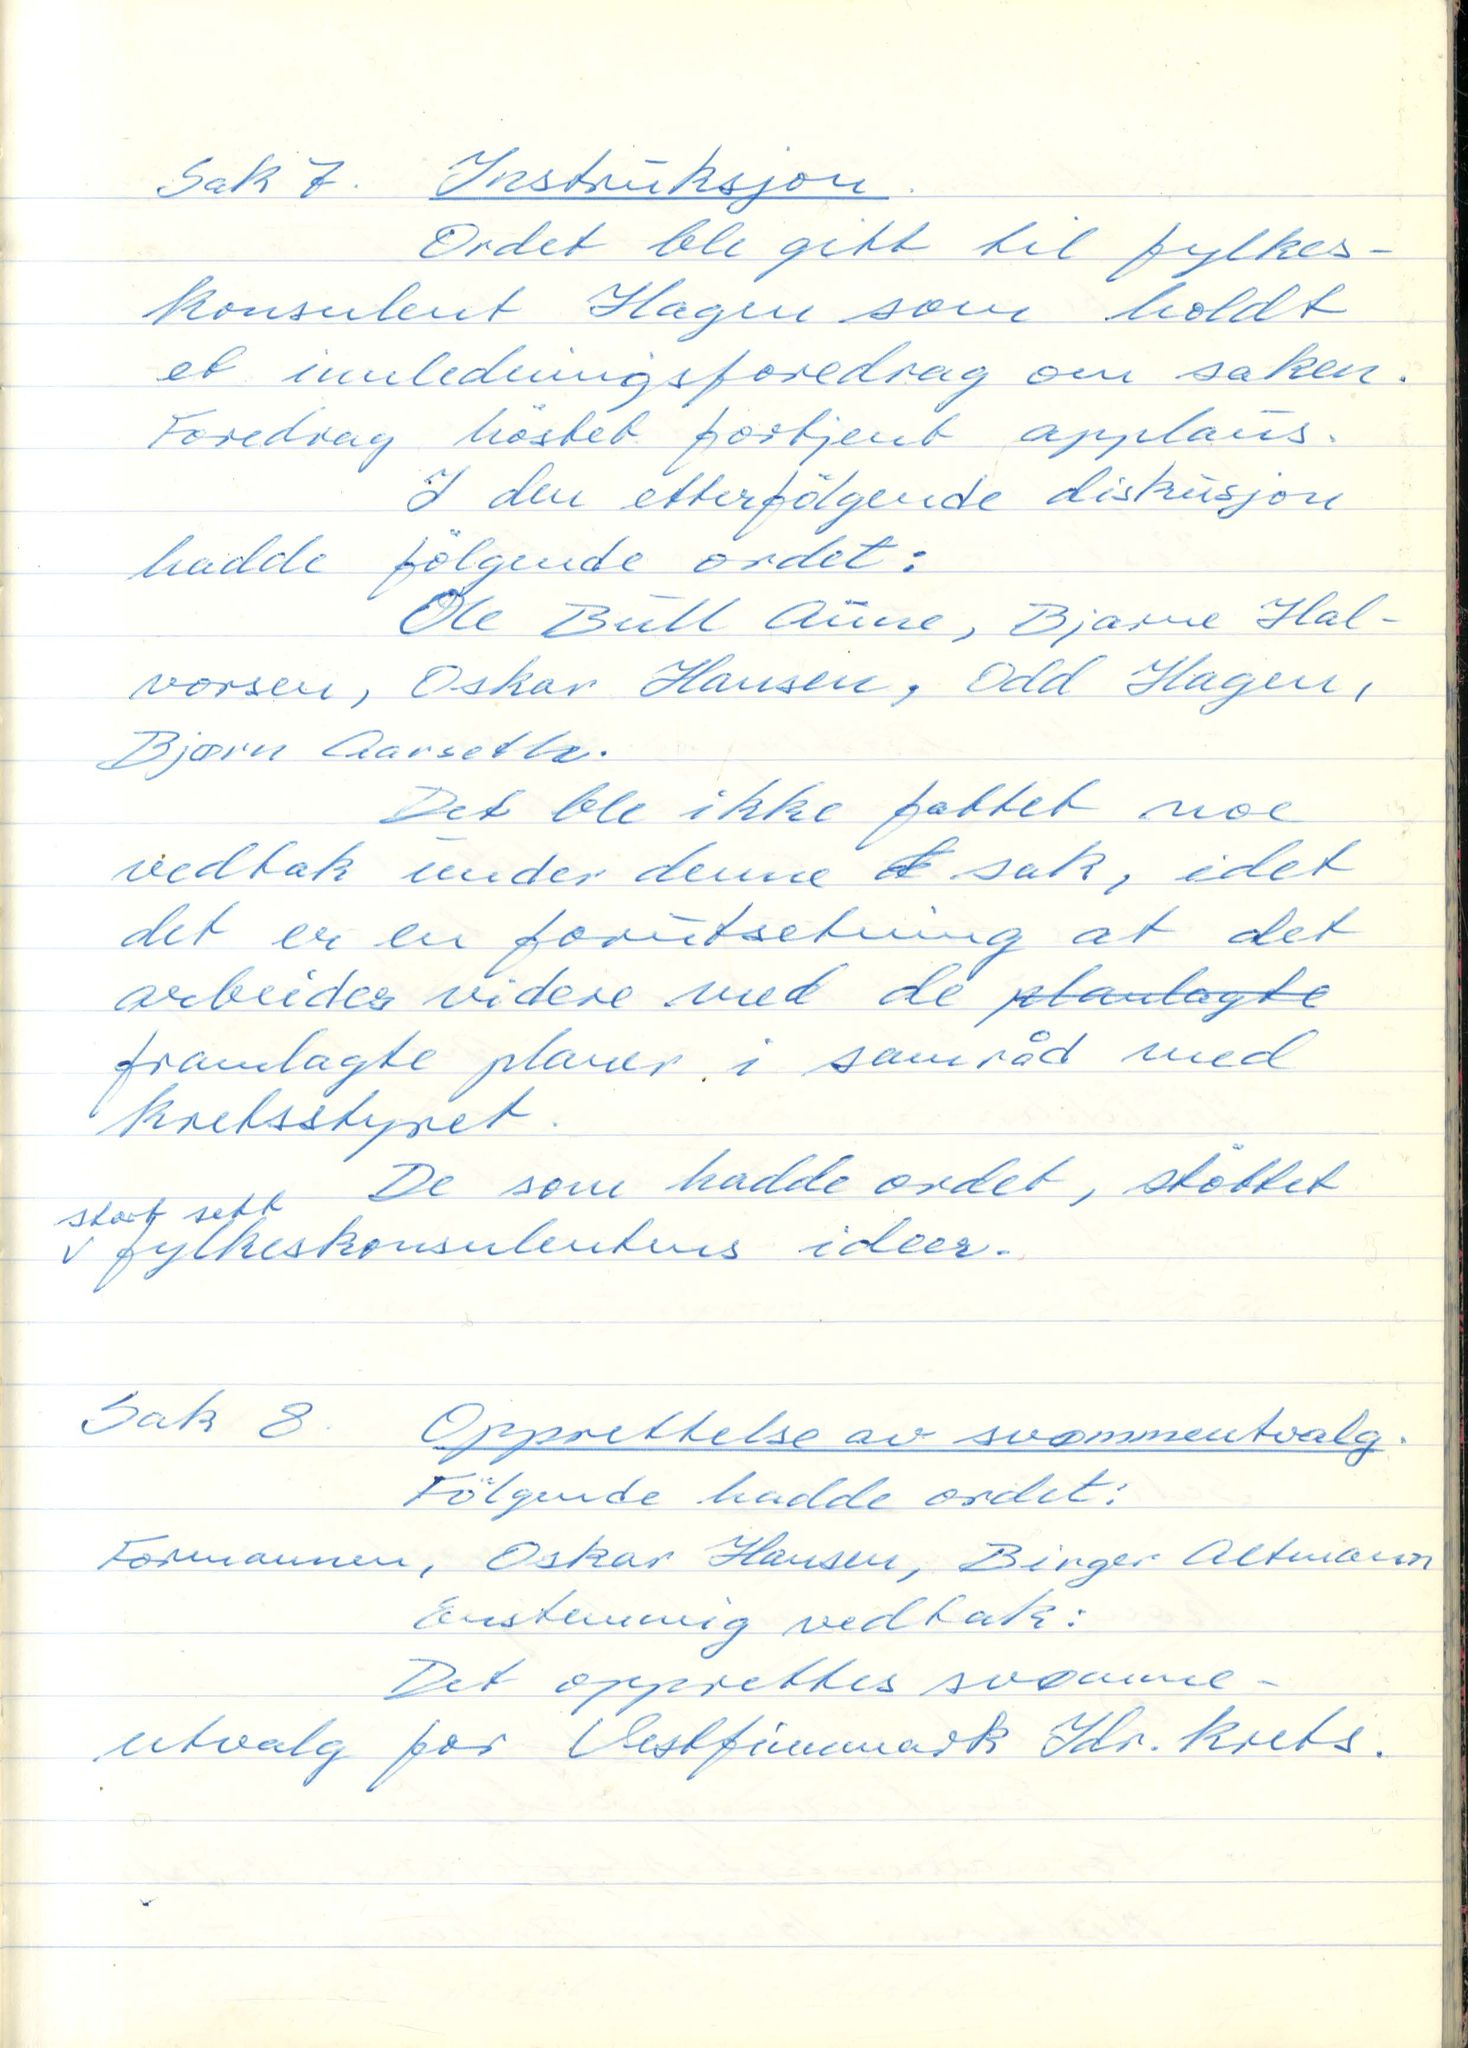 Sak 7. Instruksjon.
Ordet ble gitt til fylkes-
konsulent Hagen som holdt
et innledningsforedrag om saken.
Foredrag höstet fortjent applaus.
I den etterfölgende diskusjon
hadde fölgende ordet:
Ole Bull Aune, Bjarne Hal-
vorsen, Oskar Hansen, Odd Hagen,
Bjørn Aarseth.
Det ble ikke fattet noe
vedtak under denne sak, idet
det er en forutsetning at det
arbeides videre med de planlagte
framlagte planer i samråd med
kretsstyret.
De som hadde ordet, stöttet
stort sett
fylkeskonsulentens ideer.
Sak 8. Opprettelse av svømmeutvalg.
Fölgende hadde ordet:
Formannen, Oskar Hansen, Birger Altmann
Enstemmig vedtak:
Det opprettes svømme-
utvalg for Vestfinnmark Idr. krets.